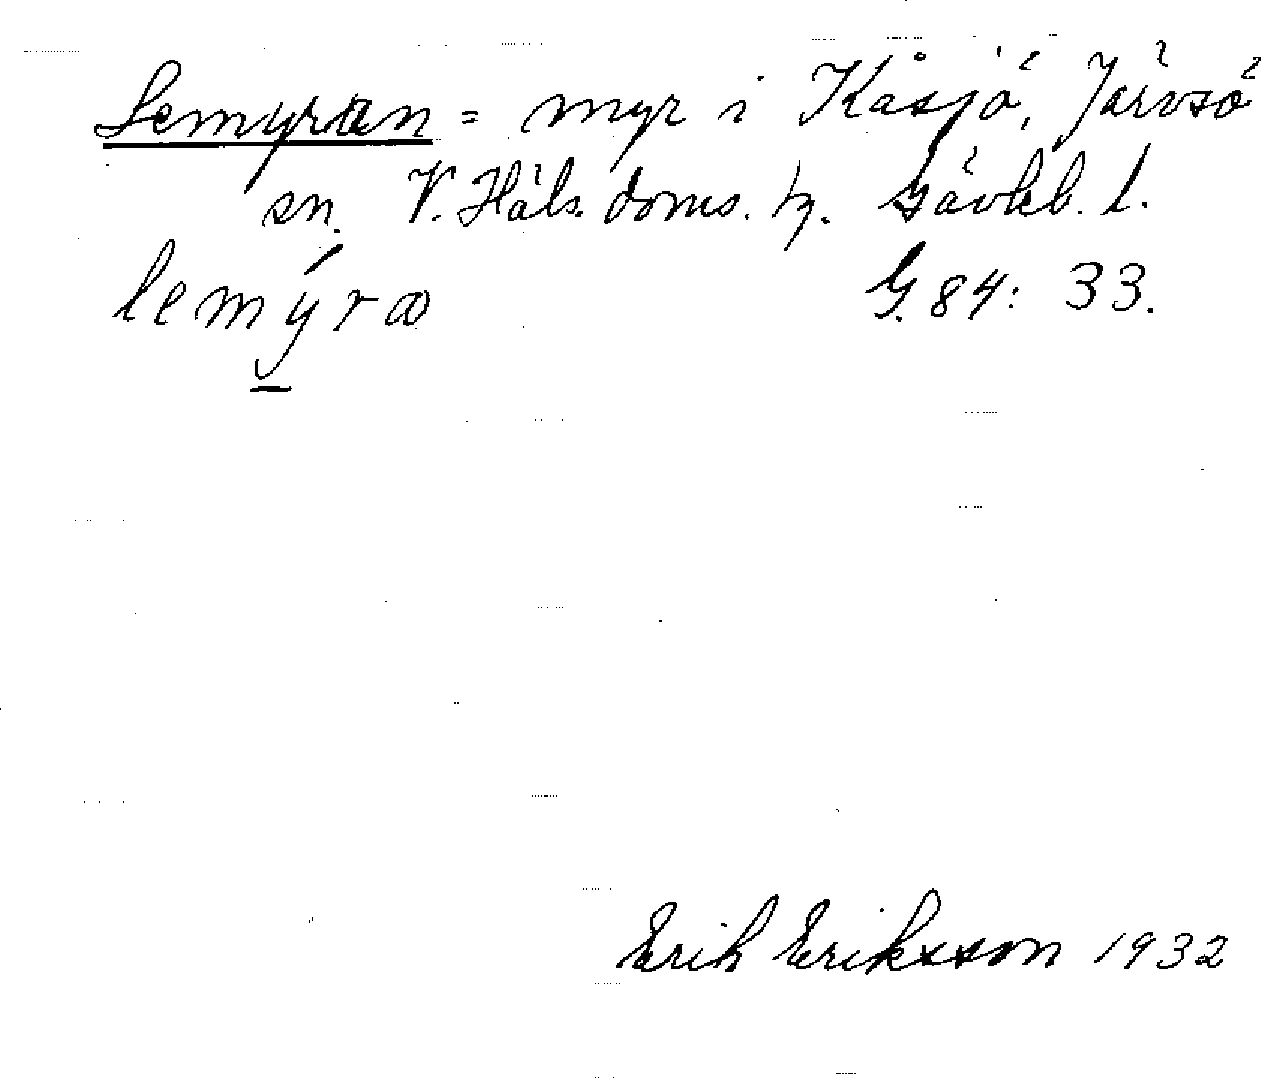 Lemyran = myr i Kåsjö, Järvsö
sn. V. Häls. doms. tg. Gävleb. l.
lemý̠ra G. 84: 33.
Erik Eriksson 1932